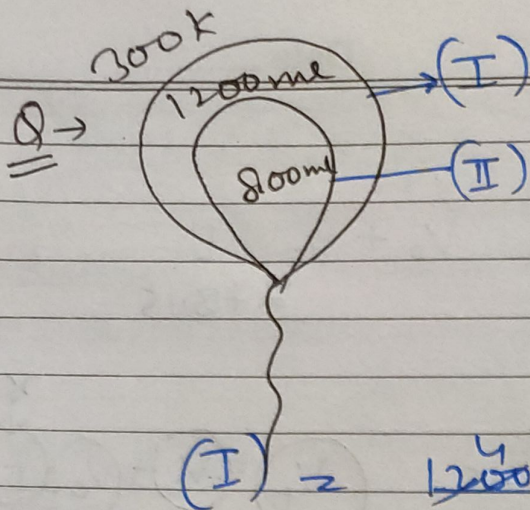 300K
1200ml
(I)
Q →
800ml
(II)
(I) = 1200
4